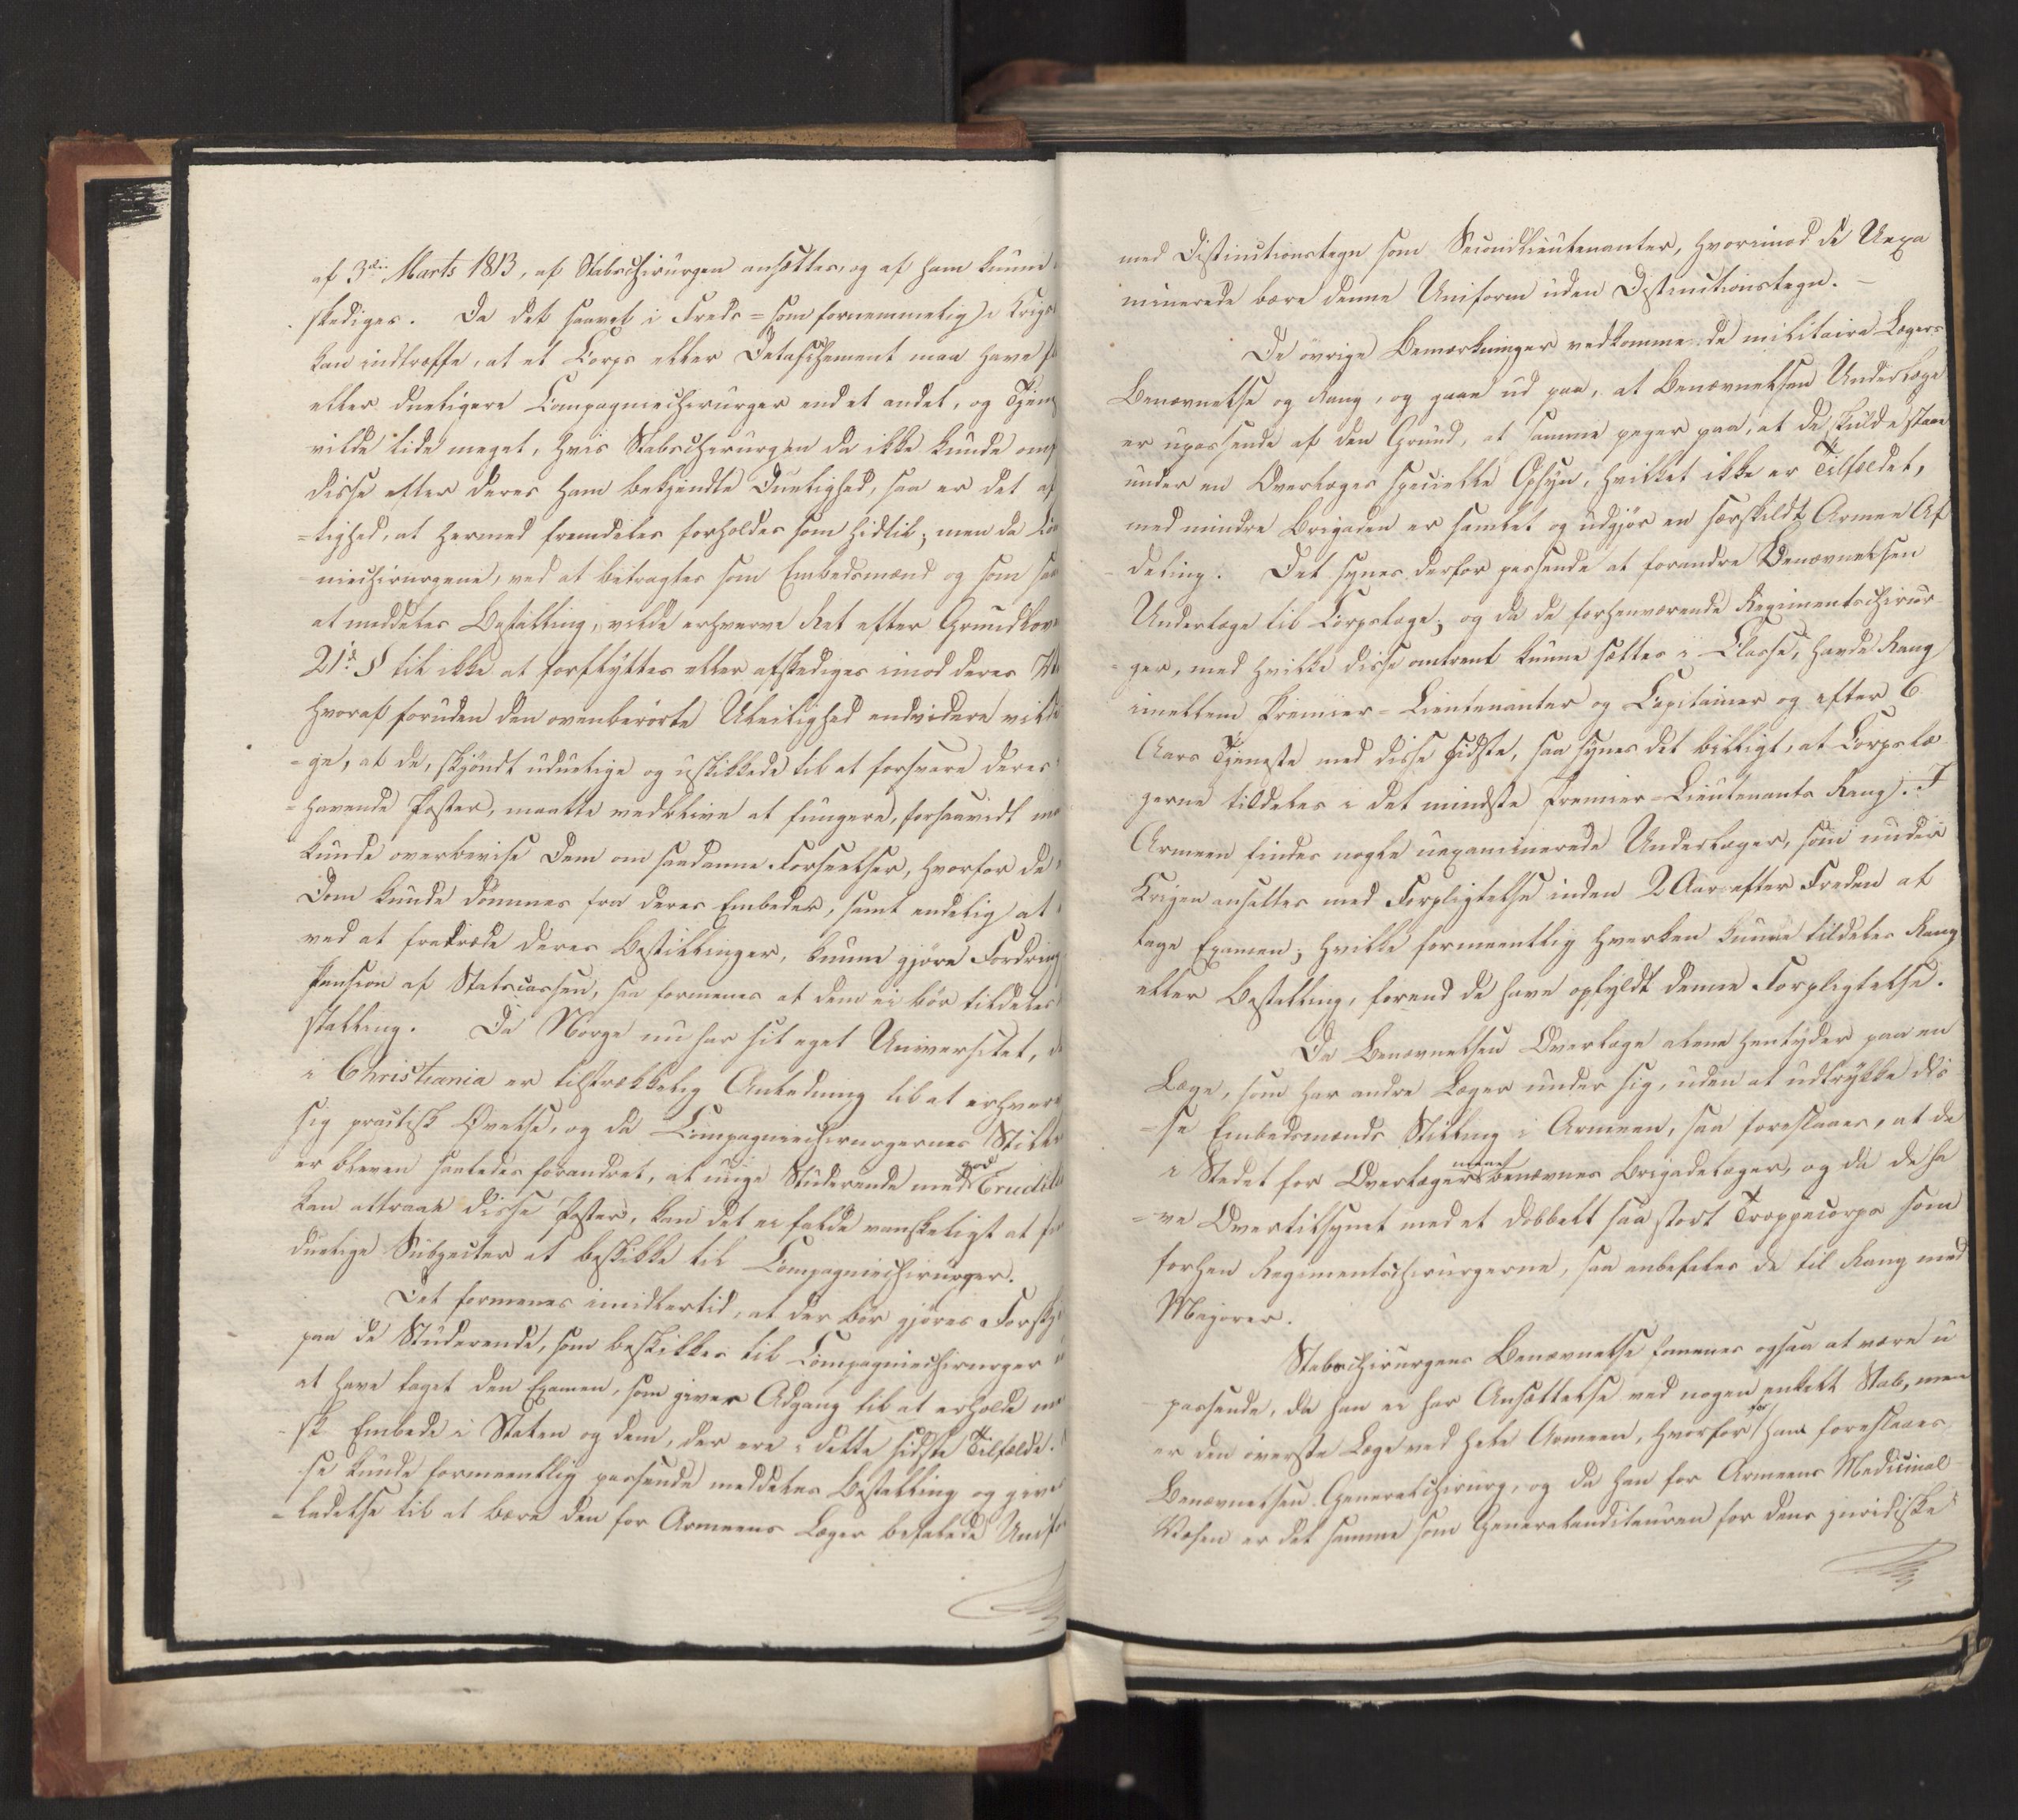 af 3die Marts 1813, af Stabschirurgen ansættes, og af ham kunne
skediges. Da det saavel i Freds- som fornemmelig i Krigs
kan indtræffe, at et Corps eller Detaschement maa have
eller dueligere Compagniechirurger end et andet, og Tjene
vilde lide meget, hvis Stabschirurgen da ikke kunde
disse efter deres ham bekjendte Duelighed, saa er det af
=tighed, at hermed fremdeles forholdes som hidtil; men da
niechirurgene, ved at betragtes som Embedsmænd og som saa
at meddeles Bestalling, vilde erhverve Ret efter Grundlov
21d § til ikke at forflyttes eller afskediges imod deres
hvoraf foruden den ovenberörte Uleilighed endvidere vilde
=ge, at de, skjöndt uduelige og uskikkede til at forsvare deres
=havende Poster, maatte vedblive at fungere, forsaavidt
kunde overbevise dem om saadanne Forseelser, hvorfor de
Dom kunde dömmes fra deres Embeder, samt endelig at
ved at fratræde deres Bestillinger, kunne gjöre Fordring
Pension af Statscassen, saa formenes at dem ei bör tildeles
stalling. Da Norge nu har sit eget Universitet,
i Christiania er tilstrækkelig Anledning til at erhverve
sig practisk Övelse, og da Compagniechirurgernes Stilli
er bleven saaledes forandret, at unge Studerende med god Erudit
kan attraae disse Poster, kan det ei falde vanskeligt at
duelige Subjecter at beskikke til Compagniechirurger.
Det formenes imidlertid, at der bör gjöres Forskj
paa de Studerende, som beskikkes til Compagniechirurger
at have taget den Examen, som giver Adgang til at erholde
=sk Embede i Staten og dem, der ere i dette sidste Tilfælde.
se kunde formeentlig passende meddeles Bestalling og give
=ladelse til at bære den for Armeens Læger befalede Unif
med Distinctionstegn som Secondlieutenanter, hvorimod de Uexa
minerede bære denne Uniform uden Distinctionstegn. –
De övrige Bemærkninger vedkomme de militaire Lægers
Benævnelse og Rang, og gaae ud paa, at Benævnelsen Underlæge
er upassende af den Grund, at samme peger paa, at de skulde staae
under en Overlæges specielle Opsyn, hvilket ikke er Tilfældet,
med mindre Brigaden er samlet og udgjör en særskildt Armee Af
deling. Det synes derfor passende at forandre Benævnelsen
Underlæge til Corpslæge; og da de forhenværende Regimentschirur
=ger, med hvilke disse omtrent kunne sættes i Classe, havde Rang
imellem Premier-Lieutenanter og Capitainer og efter 6
Aars Tjeneste med disse sidste, saa synes det billigt, at Corpslæ
gerne tildeles i det mindste Premier-Lieutenants Rang. I
Armeen findes nogle uexaminerede Underlæger, som under
Krigen ansattes med Forpligtelse inden 2 Aar efter Freden at
tage Examen; hvilke formeentlig hverken kunne tildeles Rang
eller Bestalling, forend de have opfyldt denne Forpligtelse.
Da Benævnelsen Overlæge alene hentyder paa en
Læge, som har andre Læger under sig, uden at udtrykke dis
=se Embedsmænds Stilling i Armeen, saa foreslaaes, at de
i Stedet for Overlæger benævnes Brigadelæger, og da de ha
=ve Overtilsynet med et dobbelt saa stort Troppecorps som
forhen Regimentschirurgerne, saa anbefales de til Rang med
Majorer.
Stabschirurgens Benævnelse formenes ogsaa at være u
passende, da han ei har Ansættelse ved nogen enkelt Stab, men
er den överste Læge ved hele Armeen, hvorfor for ham foreslaaes
Benævnelsen Generalchirurg, og da han for Armeens Medicinal
Væsen er det samme som Generalauditeuren for dens juridiske